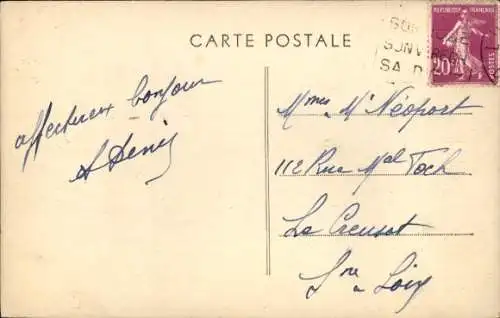 CARTE POSTALE
REPUBLIQUE FRANÇAISE
20c
POSTES
SON VI
SA D
affectueux bonjour
A Denis
112 Rue Mal Foch
Le Creusot
Sne & Loire